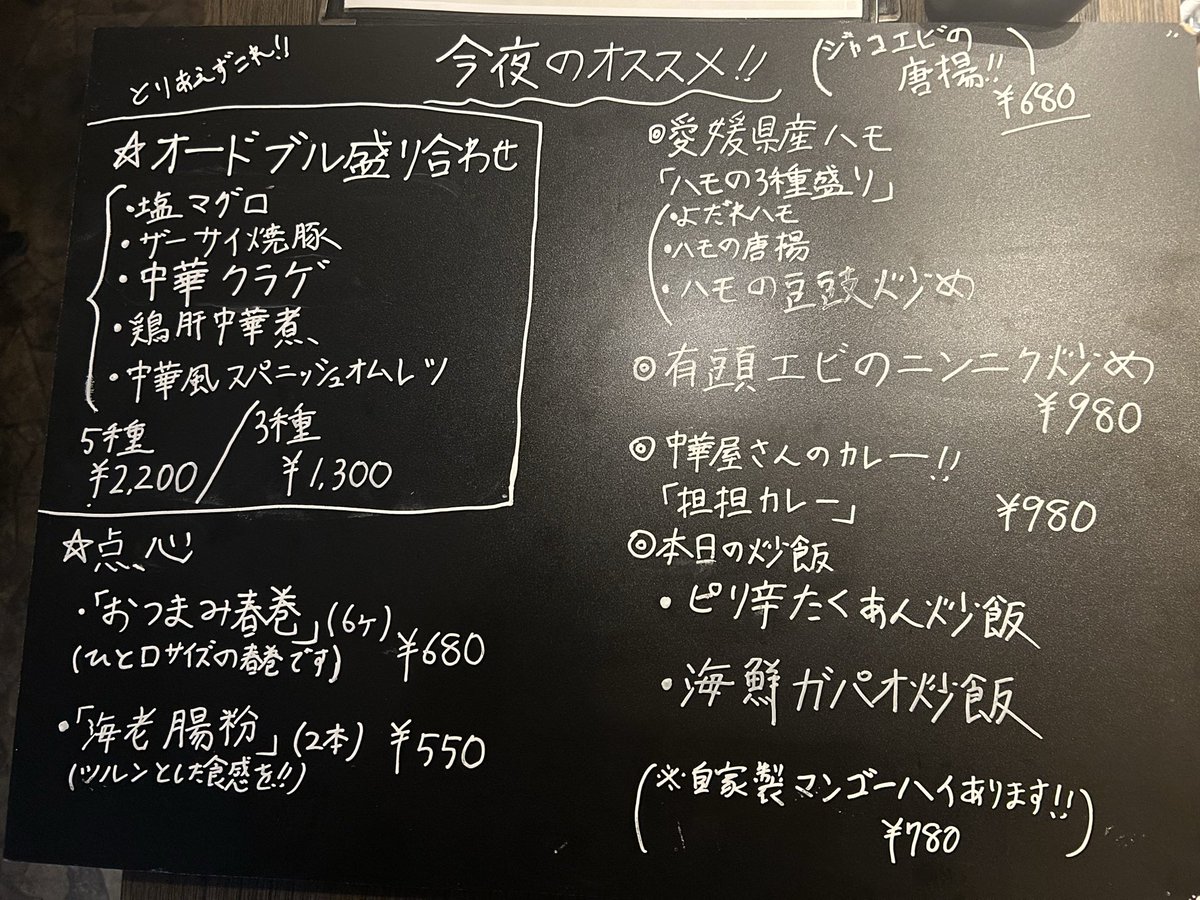 今夜のオススメ!!
とりあえずこれ!!
☆オードブル盛り合わせ
・塩マグロ
・ザーサイ焼豚
・中華クラゲ
・鶏肝中華煮
・中華風スパニッシュオムレツ
5種 / 3種
¥2,200 ¥1,300
☆点心
・「おつまみ春巻」(6ヶ) ¥680
(ひと口サイズの春巻です)
・「海老腸粉」(2本) ¥550
(ツルンとした食感を!!)
(ジャコエビの
唐揚!!)
¥680
◎愛媛県産ハモ
「ハモの3種盛り」
・よだれハモ
・ハモの唐揚
・ハモの豆豉炒め
◎有頭エビのニンニク炒め
¥980
◎中華屋さんのカレー!!
「担担カレー」 ¥980
◎本日の炒飯
・ピリ辛たくあん炒飯
・海鮮ガパオ炒飯
(※自家製マンゴーハイあります!!)
¥780